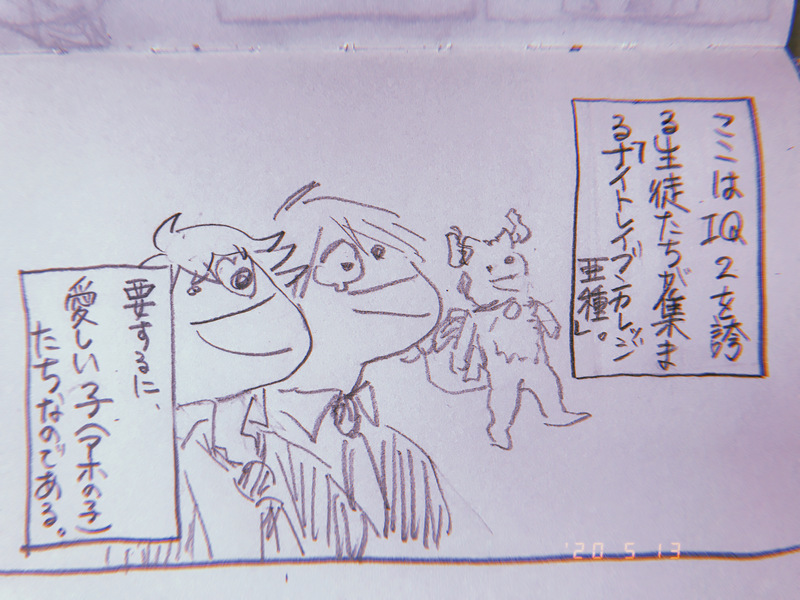 ここはIQ2を誇
る生徒たちが集ま
る「ナイトレイブンカレッジ
亜種」。
要するに、
愛しい子(アホの子)
たちなのである。
'20 5 13